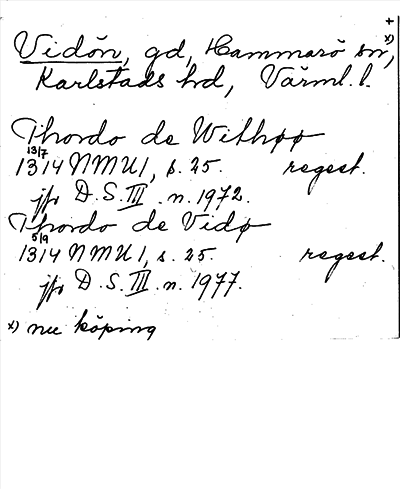 +
Vidön, gd, Hammarö sn, x)
Karlstads hd, Värml. l.
Thordo de Withøø
13/7
1314 NMU1, s. 25. regest.
jfr D.S. III. n. 1972.
Thordo de Vidø
5/9
1314 NMU1, s. 25. regest.
jfr D.S. III. n. 1977.
x) nu köping